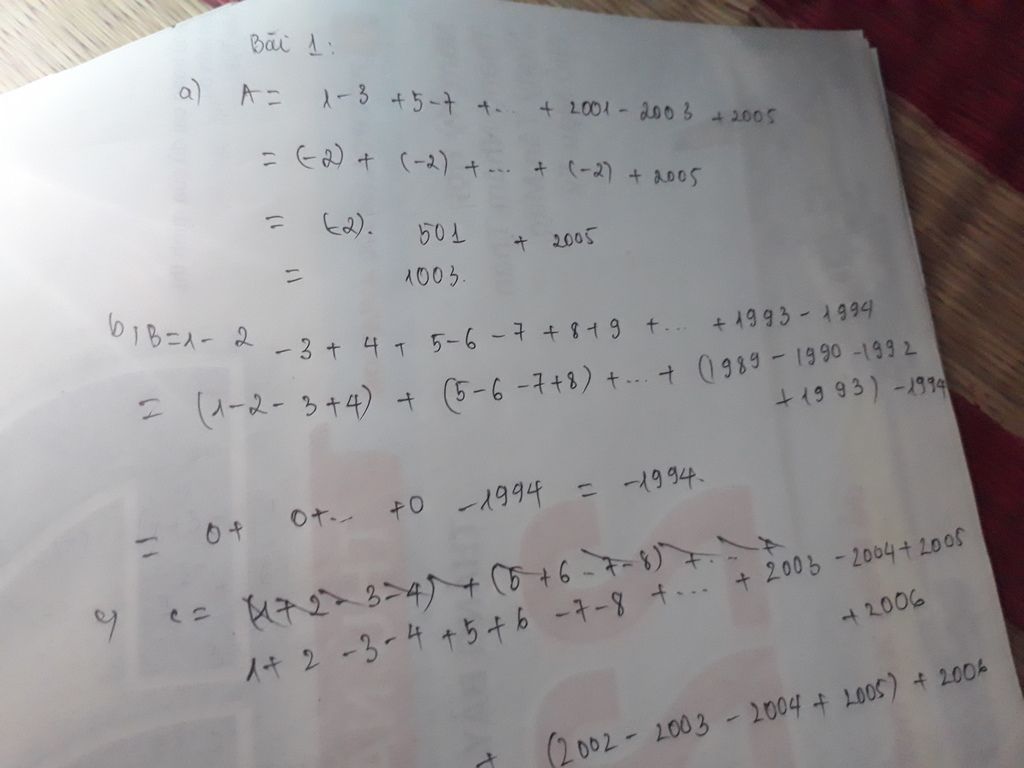 Bài 1:
a) A = 1 - 3 + 5 - 7 + ... + 2001 - 2003 + 2005
= (-2) + (-2) + ... + (-2) + 2005
= (-2). 501 + 2005
= 1003.
b, B = 1 - 2 - 3 + 4 + 5 - 6 - 7 + 8 + 9 + ... + 1993 - 1994
= (1 - 2 - 3 + 4) + (5 - 6 - 7 + 8) + ... + (1989 - 1990 - 1992
+ 1993) - 1994
= 0 + 0 + ... + 0 - 1994 = -1994.
c, C = (1 + 2 - 3 - 4) + (5 + 6 - 7 - 8) + ... +
1 + 2 - 3 - 4 + 5 + 6 - 7 - 8 + ... + 2003 - 2004 + 2005
+ 2006
+ (2002 - 2003 - 2004 + 2005) + 2006